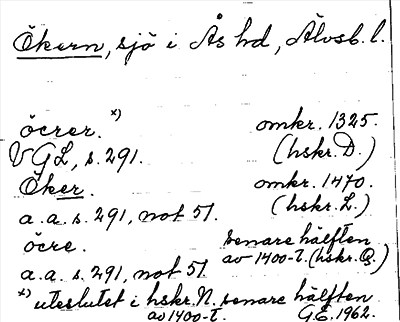 Ökern, sjö i Ås hd, Älvsb. l.
öcrer. x) omkr. 1325.
VGL, s. 291. (hskr. D.)
Öker. omkr. 1470.
a. a. s. 291, not 51. (hskr. L.)
öcre. senare hälften
a. a. s. 291, not 51. av 1400-t. (hskr. Q.)
x) uteslutet i hskr. N. senare hälften
av 1400-t. G.E. 1962.